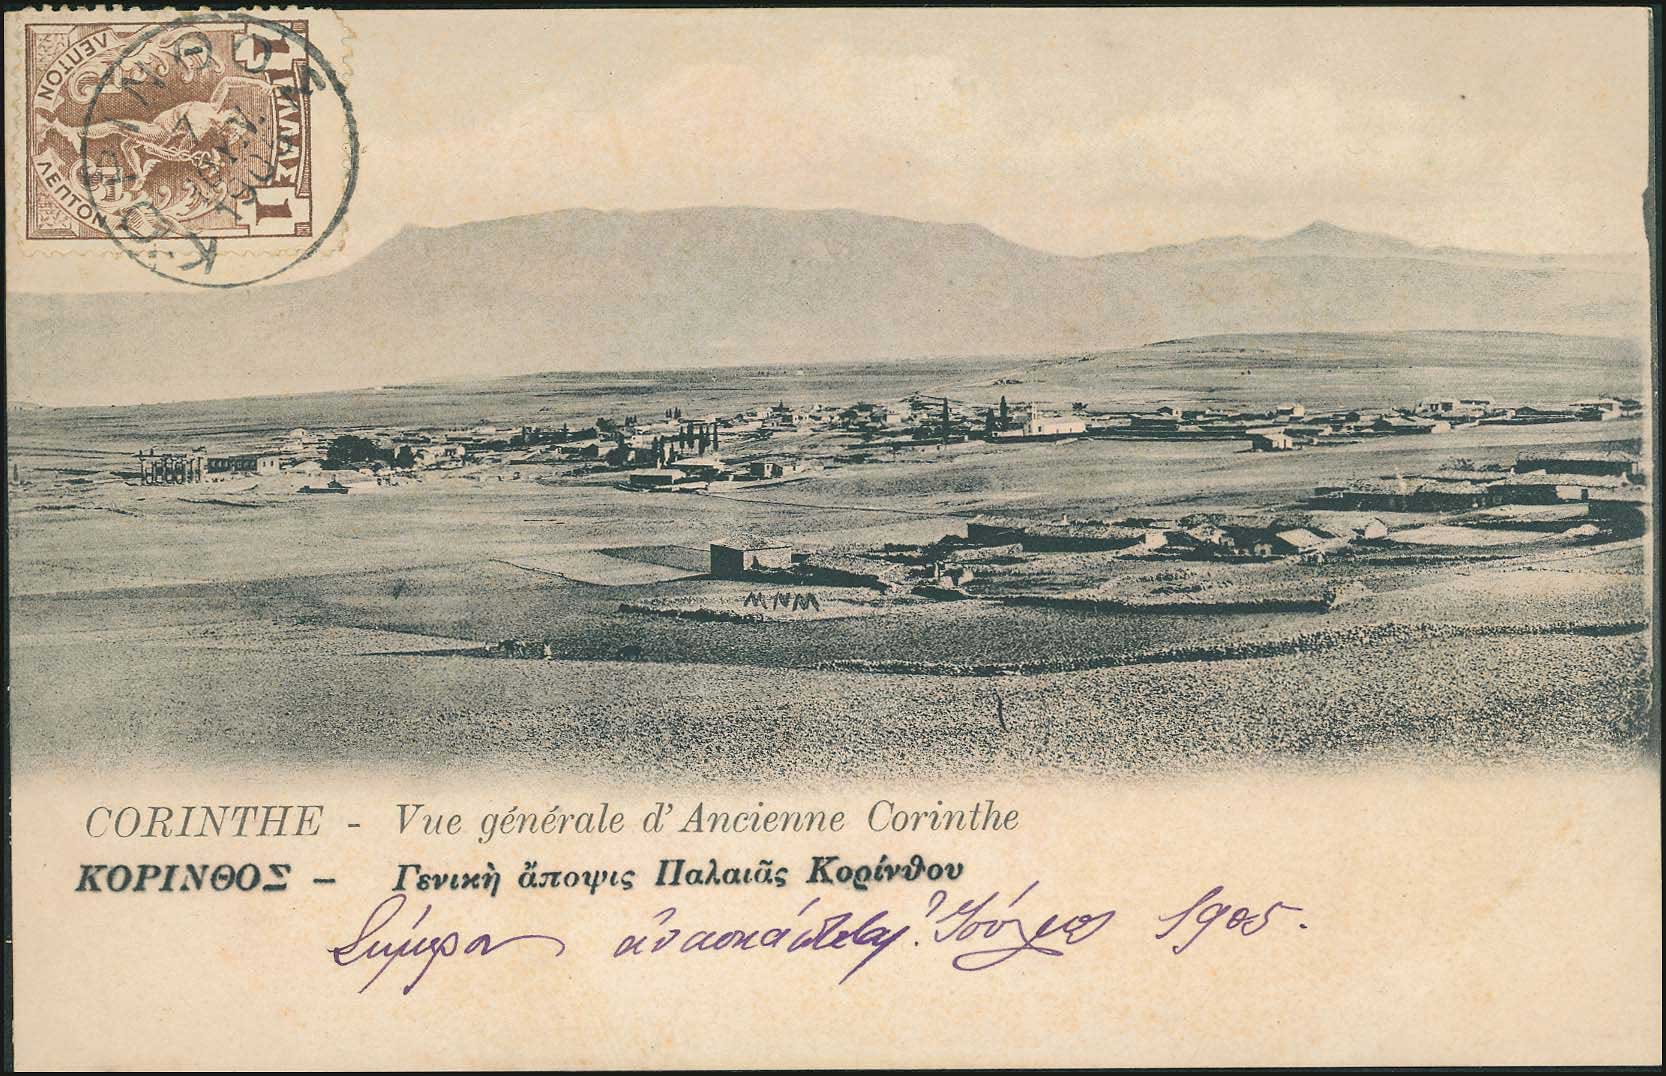 ΕΛΛΑΣ
1 1
ΛΕΠΤΟΝ ΛΕΠΤΟΝ
ΚΟΡΙΝΘΟΣ
7
ΜΝΜ
CORINTHE - Vue générale d'Ancienne Corinthe
ΚΟΡΙΝΘΟΣ – Γενικὴ ἄποψις Παλαιᾶς Κορίνθου
Σήμερον ἀνασκάπτεται Ἰούλιος 1905.